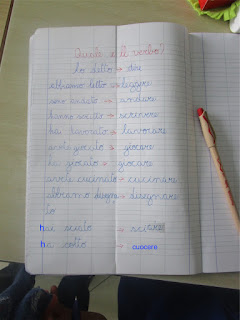 Quale è il verbo?
ho detto → dire
abbiamo letto → leggere
sono andato → andare
hanno scritto → scrivere
ha lavorato → lavorare
avete giocato → giocare
ha giocato → giocare
avete cucinato → cucinare
abbiamo disegna → disegnare
to
hai sciato → sciare
ha cotto → cuocere